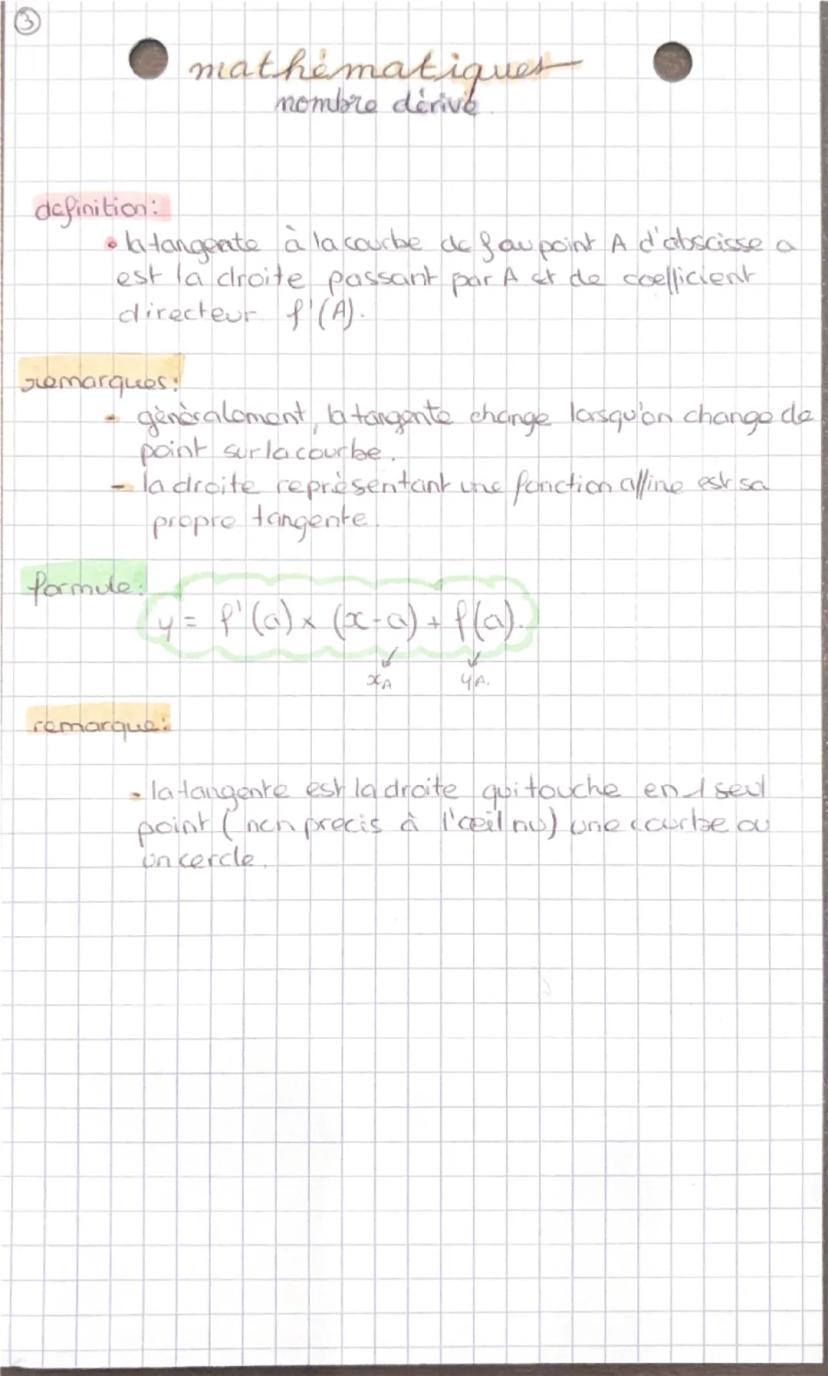 3
mathématiques
nombre dérivé.
definition:
• la tangente à la courbe de f au point A d'abscisse a
est la droite passant par A et de coefficient
directeur f'(A).
remarques:
- généralement, la tangente change lorsqu'on change de
point sur la courbe.
- la droite représentant une fonction affine est sa
propre tangente.
formule:
y = f'(a) × (x-a) + f(a).
xA yA.
remarque:
- la tangente est la droite qui touche en 1 seul
point (non precis à l'œil nu) une courbe ou
un cercle.